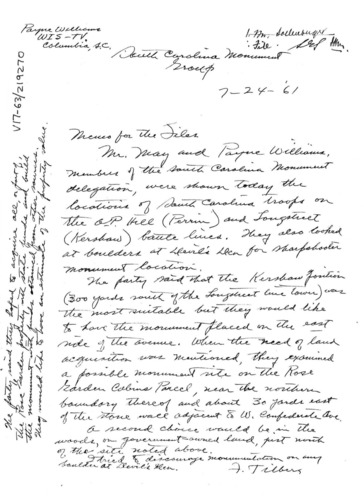 Payne Williams
WIS-TV.
Columbia, S.C.
1-Mr.
File
South Carolina Monument
Group
7-24-'61
Memo for the Files
Mr. May and Payne Williams,
members of the South Carolina Monument
delegation, were shown today the
locations of South Carolina troops on
the A.P. Hill (Perrin) and Longstreet
(Kershaw) battle lines. They also looked
at boulders at Devil's Den for sharpshooter
monument location.
The party said that the Kershaw position
(300 yards south of the Longstreet line tower) was
the most suitable but they would like
to have the monument placed on the east
side of the avenue. When the need of land
acquisition was mentioned, they examined
a possible monument site on the Rose
Garden Cabins Parcel, near the northern
boundary thereof and about 30 yards east
of the stone wall adjacent to W. Confederate Ave.
A second choice would be in the
woods, on government-owned land, just north
of the site noted above.
I tried to discourage monumentation on any
boulder at Devil's Den.
F. Tilberg
V17-63/219270
The party said they hoped to acquire all, or part, of
the Rose Garden property with state funds and build
the monument with funds obtained from other sources.
They would like to have an estimate of the property value.